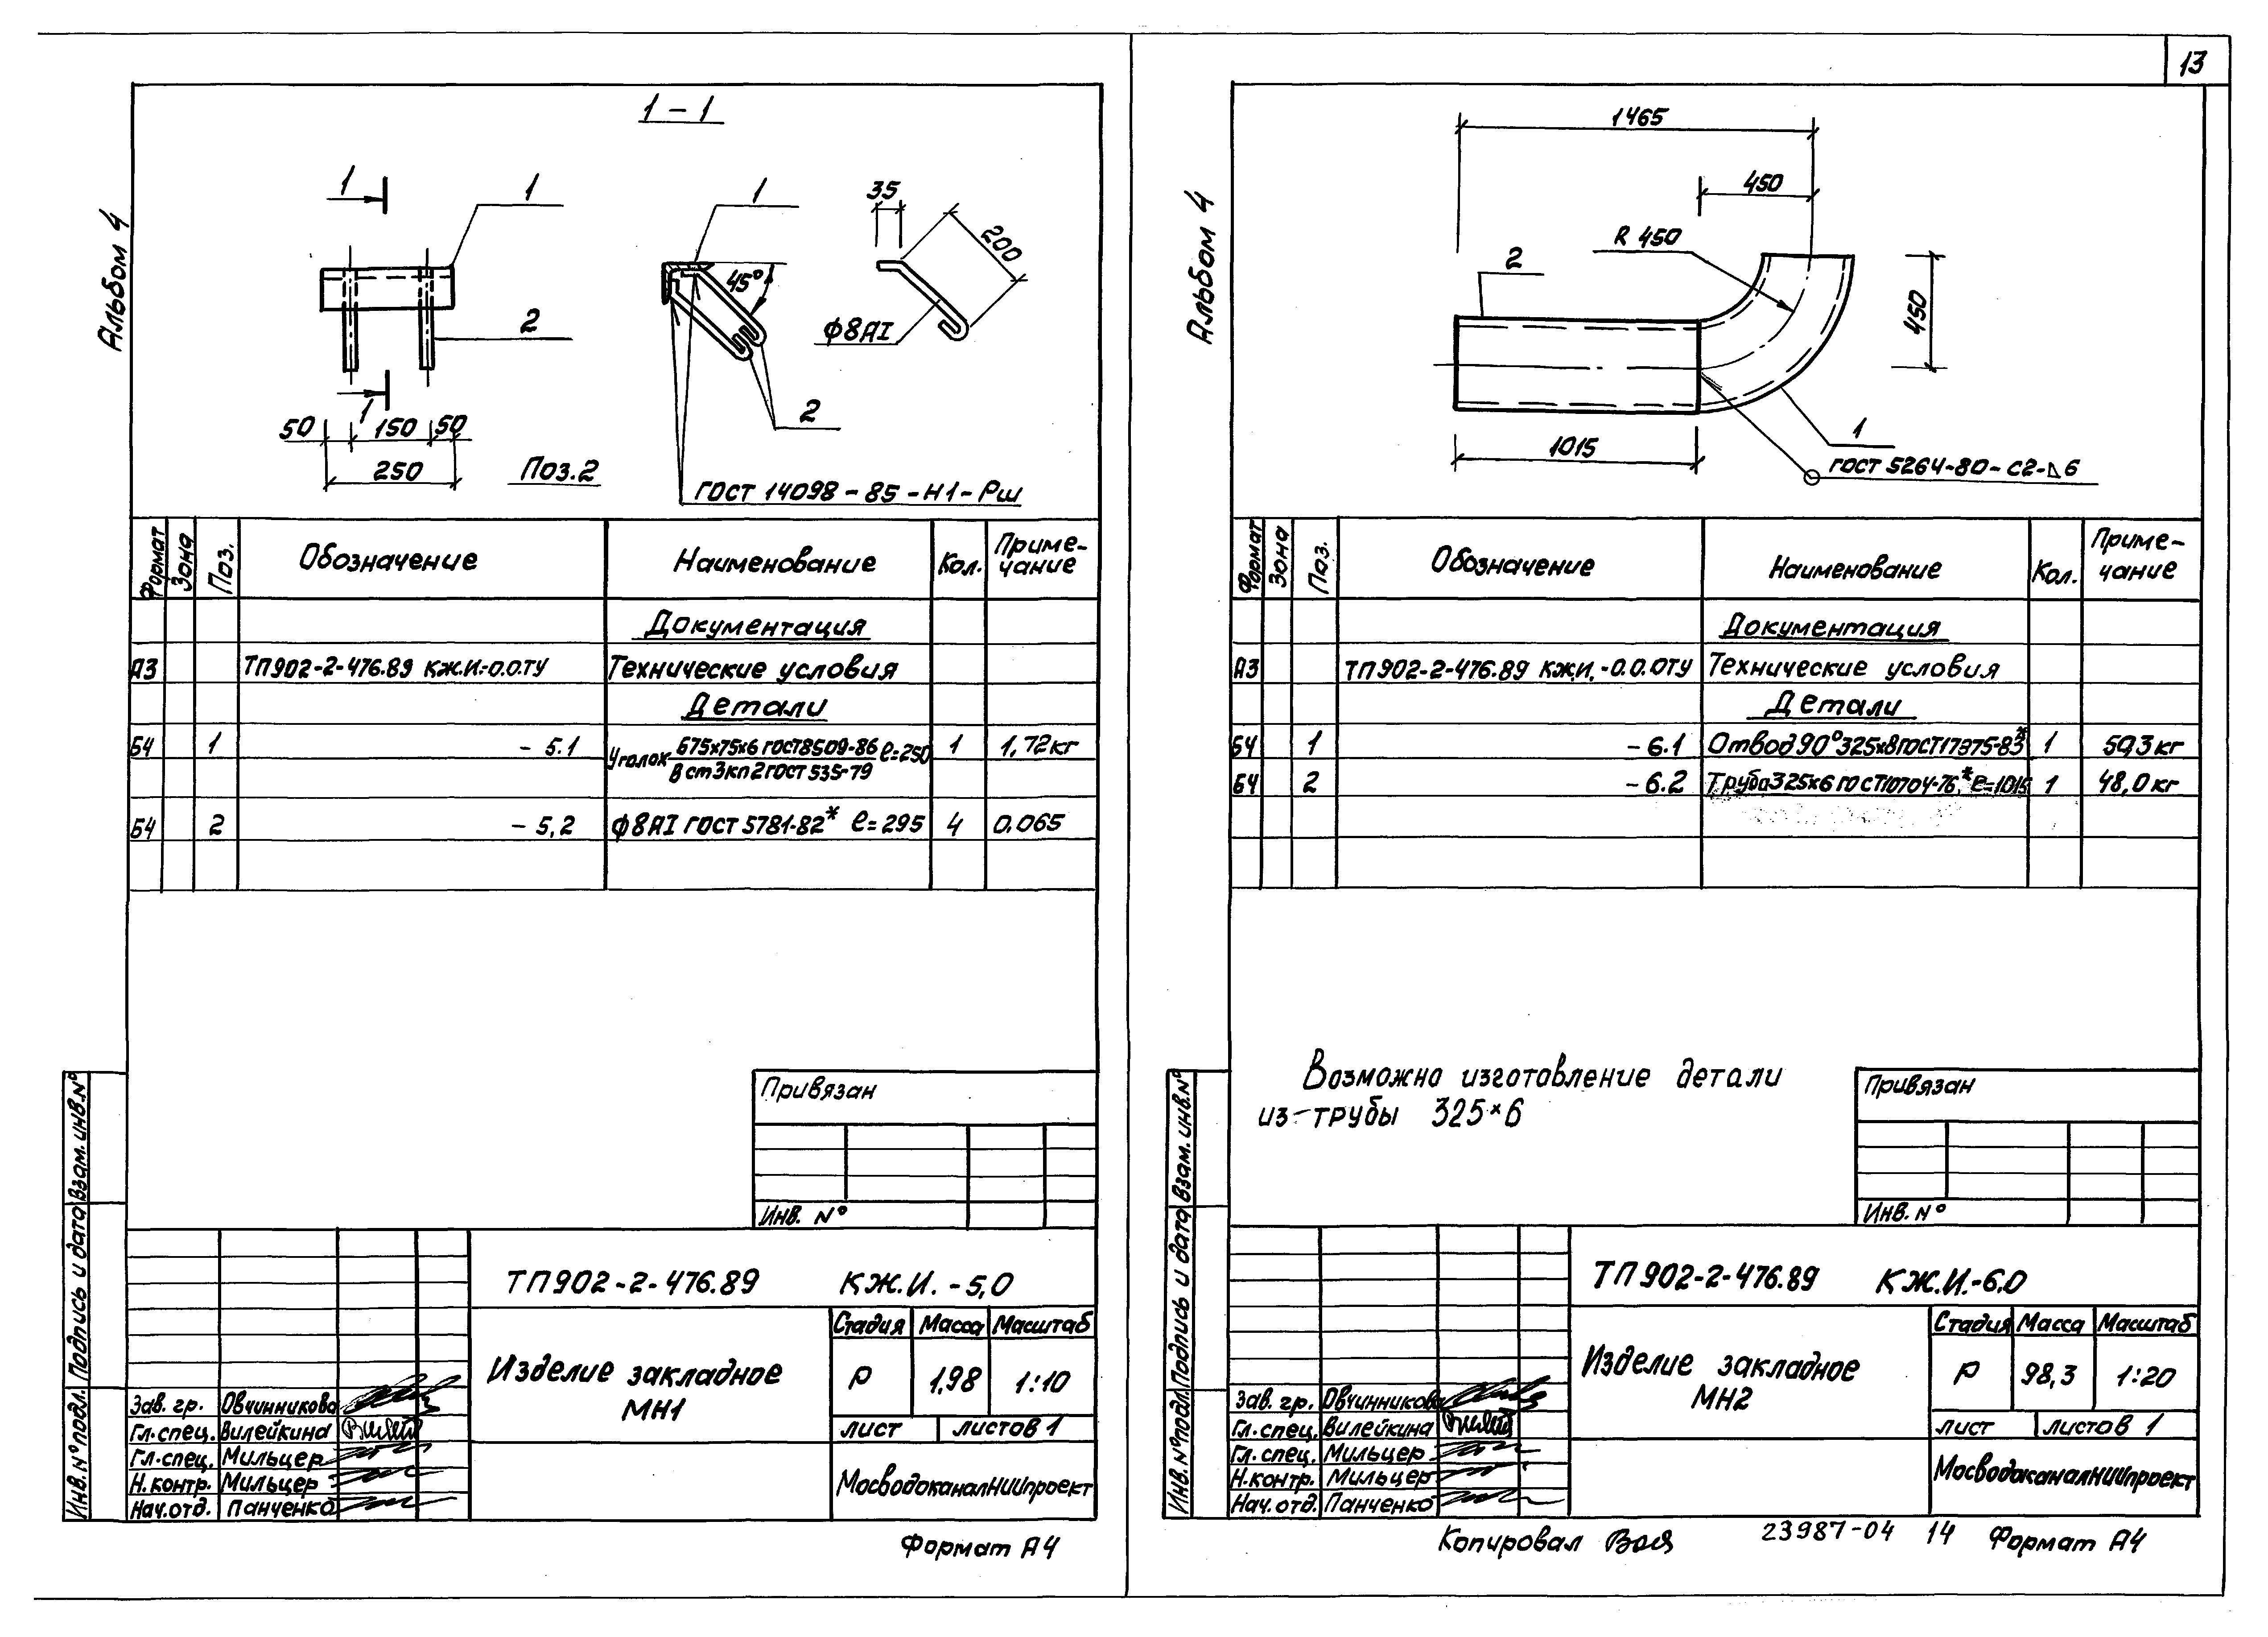 13
Альбом 4
1 - 1
1
1
2
1
50
150
50
250
Поз.2
1
45°
2
ГОСТ 14098 - 85 - Н1 - Рш
35
200
ф8АI
Формат Зона Поз. Обозначение Наименование Кол. Приме-
чание
Документация
А3 ТП902-2-476.89 КЖ.И.-0.0.ТУ Технические условия
Детали
Б4 1 - 5.1 Уголок Б75х75х6 ГОСТ8509-86 ℓ=250 1 1,72кг
Вст3кп2 ГОСТ 535-79
Б4 2 - 5,2 ф8АI ГОСТ 5781-82* ℓ= 295 4 0.065
Привязан
Инв. N°
ТП902-2-476.89 КЖ.И. -5,0
Изделие закладное
МН1
Стадия Масса Масштаб
Р 1,98 1:10
лист листов 1
МосводоканалНИИпроект
Зав. гр. Овчинникова
Гл.спец. Вилейкина
Гл.спец. Мильцер
Н.контр. Мильцер
Нач.отд. Панченко
Инв.N°подл. Подпись и дата Взам.инв.N°
Формат А4
Альбом 4
1465
450
R 450
2
450
1015
1
ГОСТ 5264-80-С2-⊿6
Формат Зона Поз. Обозначение Наименование Кол. Приме-
чание
Документация
А3 ТП902-2-476.89 КЖ.И. -0.0.0ТУ Технические условия
Детали
Б4 1 - 6.1 Отвод90°325х8ГОСТ17375-83* 1 50,3кг
Б4 2 - 6.2 Труба325х6 ГОСТ10704-76,* ℓ=1015 1 48,0кг
Возможно изготовление детали
из трубы 325×6
Привязан
Инв. N°
ТП902-2-476.89 КЖ.И.-6.0
Изделие закладное
МН2
Стадия Масса Масштаб
Р 98,3 1:20
лист листов 1
МосводоканалНИИпроект
Зав. гр. Овчинникова
Гл.спец. Вилейкина
Гл.спец. Мильцер
Н.контр. Мильцер
Нач.отд. Панченко
Инв.N°подл. Подпись и дата Взам.инв.N°
Копировал 23987-04 14 Формат А4